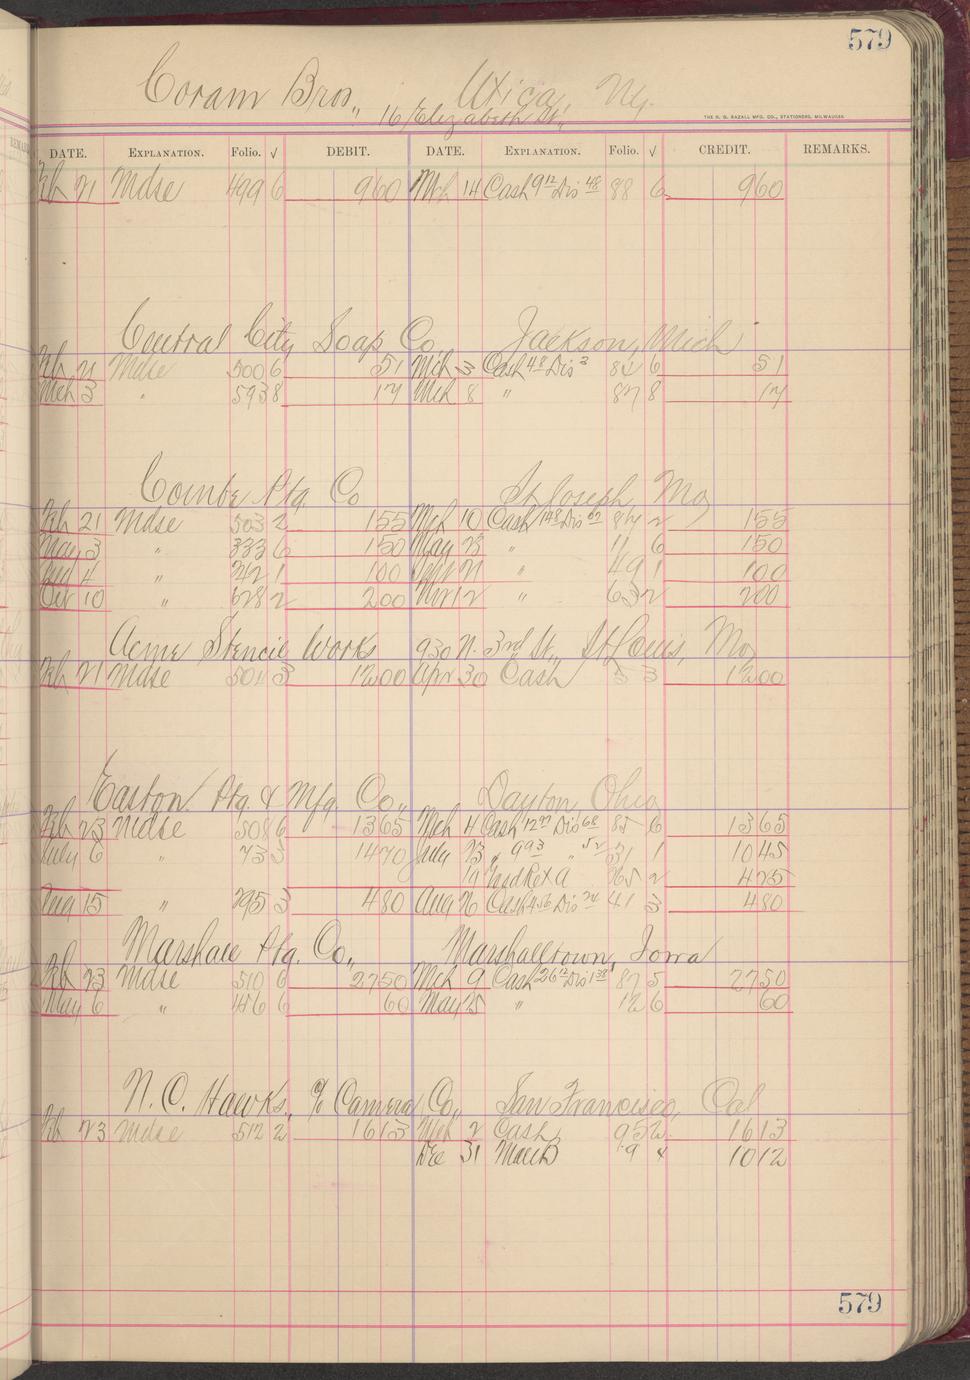 579
Coram Bros., Utica, Ny.
16 Elizabeth St.,
THE H. G. RAZALL MFG. CO., STATIONERS, MILWAUKEE
DATE. EXPLANATION. Folio. √ DEBIT. DATE. EXPLANATION. Folio. √ CREDIT. REMARKS.
Feb 21 Mdse 499 6 960 Mch 14 Cash 9 12 Dis 48 88 6 960
Central City Soap Co Jackson, Mich
Feb 21 Mdse 500 6 51 Mch 3 Cash 48 Dis 3 82 6 51
Mch 3 " 593 8 17 Mch 8 " 87 8 17
Combe Ptg. Co St Joseph, Mo
Feb 21 Mdse 503 2 155 Mch 10 Cash 148 Dis 87 2 155
May 3 " 333 6 150 May 23 " 11 6 150
Aug 4 " 242 1 100 " 49 1 100
Oct 10 " 628 2 200 Nov 12 " 63 2 200
Acme Stencil Works 930 N. 3rd St., St Louis, Mo
Feb 21 Mdse 501 3 1200 Apr 30 Cash 3 3 1200
Easton Ptg. & Mfg. Co., Dayton, Ohio
Feb 23 Mdse 508 6 1365 Mch 4 Cash 12 97 Dis 68 85 6 1365
July 6 " 73 3 1470 July 23 " 9 93 " 52 31 1 1045
19 Retd 265 2 425
Aug 15 " 295 3 480 Aug 26 Cash 4 56 Dis 24 41 3 480
Marshall Ptg. Co., Marshalltown, Iowa
Feb 23 Mdse 510 6 2750 Mch 9 Cash 26 12 Dis 1 38 87 5 2750
May 6 " 446 6 60 May 25 " 12 6 60
N. C. Hawks, % Camera Co., San Francisco, Cal
Feb 23 Mdse 512 2 1613 Mch 2 Cash 95 2 1613
Dec 31 19 4 1012
579